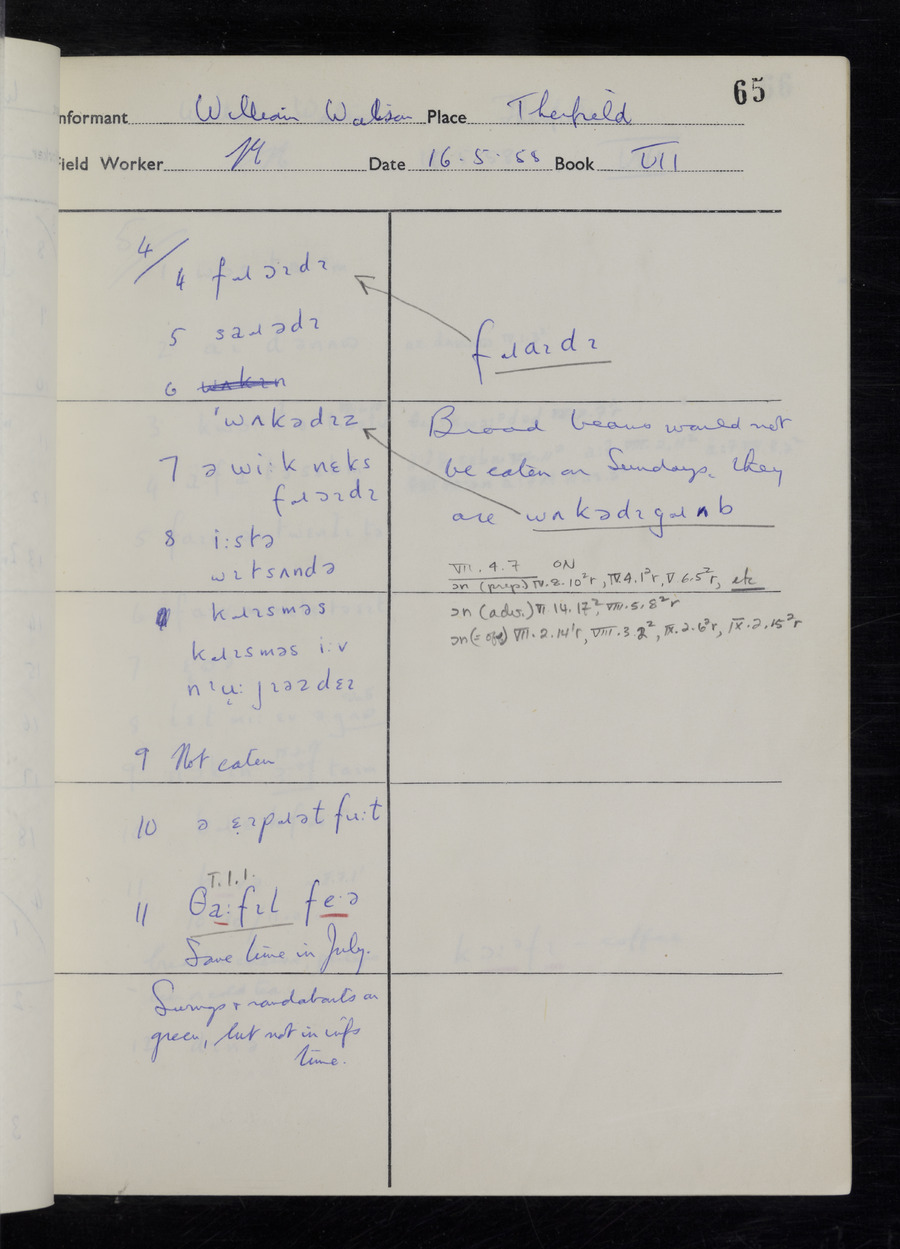 65
nformant William Watson Place Therfield
ield Worker Date 16.5.58 Book VII
4/
4 fɹəɪdɪ
5 saɹədɪ
6 wʌkɪn
'wʌkədɪz
7 ə wi:k nɛks
fɹəɪdɪ
8 i:stə
wɪtsʌndə
kɹɪsməs
kɹɪsməs i:v
9 Not eaten
10
T.I.I.
11 θa:fɪl fe:ə
Same time in July.
Swings + roundabouts on
green, but not in inf's
time.
fɹaɪdɪ
Broad beans would not
be eaten on Sundays, they
are wʌkədɪgɹʌb
VII.4.7 ON
ɔn (prep) IV.2.10²r, IV.4.1²r, V.6.5²r, etc
ɔn (adv.) VI.14.17², VIII.5.8²r
ɔn (= of) VII.2.14¹r, VIII.3.2², IX.2.6²r, IX.2.15²r